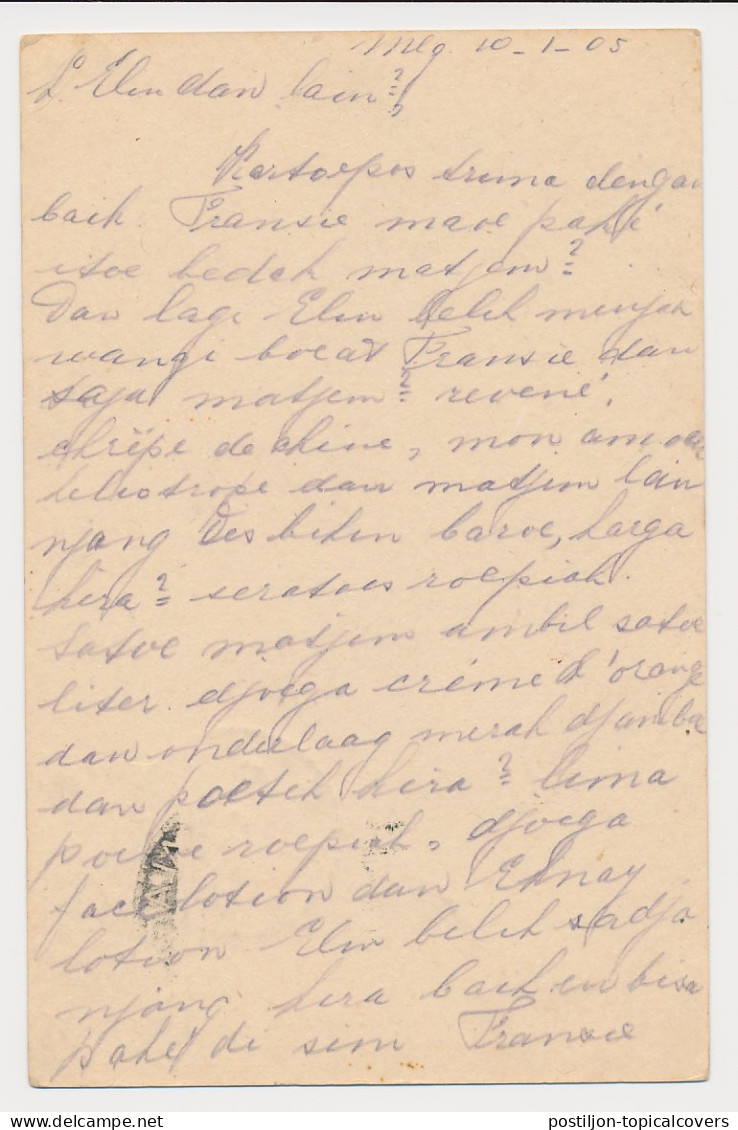 Mlg. 10-1-05
L. Elin dan lain²,
Kartoepos trima dengan
baik. Fransie maoe paké
itoe bedak matjem²
Dan lagi Elin belih minjak
wangi boeat Fransie dan
saja matjem² revené,
chrêpe de chine, mon amour
heliotrope dan matjem lain
njang des bikin baroe, harga
kira² seratoes roepiah.
Satoe matjem ambil satoe
liter djoega créme d'orange
dan onderlaag merah djamboe
dan poetih kira² lima
poeloe roepiah, djoega
face lotion dan
lotion Elin belih sadja
njang kira baik en bisa
paké di sini Fransie
postiljon-topicalcovers